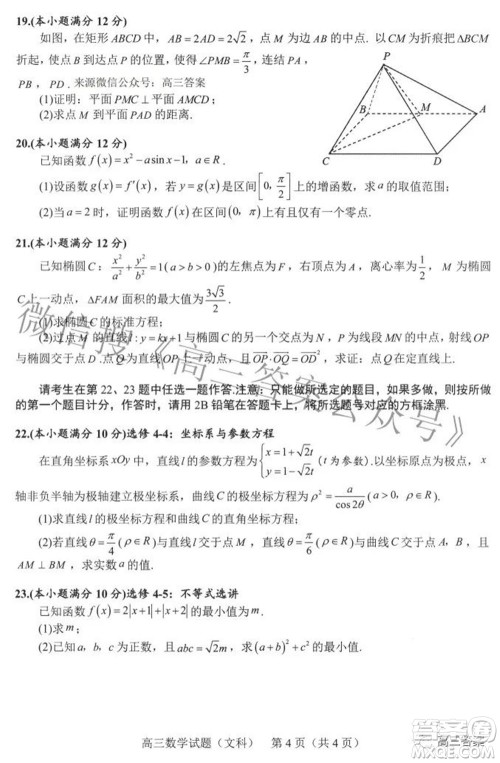 19.(本小题满分 12 分)
如图，在矩形 ABCD 中，AB=2AD=2√2，点 M 为边 AB 的中点．以 CM 为折痕把△BCM
折起，使点 B 到达点 P 的位置，使得∠PMB=π/3，连结 PA，
PB，PD．来源微信公众号：高三答案
(1)证明：平面 PMC⊥平面 AMCD；
(2)求点 M 到平面 PAD 的距离.
P
B
M
A
C
D
20.(本小题满分 12 分)
已知函数 f(x)=x²-asinx-1，a∈R．
(1)设函数 g(x)=f′(x)，若 y=g(x) 是区间[0，π/2]上的增函数，求 a 的取值范围；
(2)当 a=2 时，证明函数 f(x) 在区间(0，π)上有且仅有一个零点.
21.(本小题满分 12 分)
已知椭圆 C：x²/a²+y²/b²=1(a>b>0)的左焦点为 F，右顶点为 A，离心率为1/2，M 为椭圆
C 上一动点，△FAM 面积的最大值为3√3/2．
(1)求椭圆 C 的标准方程；
(2)过点 M 的直线 l：y=kx+1 与椭圆 C 的另一个交点为 N，P 为线段 MN 的中点，射线 OP
与椭圆交于点 D．点 Q 为直线 OP 上一动点，且OP·OQ=OD²，求证：点 Q 在定直线上.
请考生在第 22、23 题中任选一题作答.注意：只能做所选定的题目，如果多做，则按所做
的第一个题目计分，作答时，请用 2B 铅笔在答题卡上，将所选题号对应的方框涂黑.
22.(本小题满分 10 分)选修 4-4：坐标系与参数方程
在直角坐标系 xOy 中，直线 l 的参数方程为{x=1+√2t y=1-√2t (t 为参数).以坐标原点为极点，x
轴非负半轴为极轴建立极坐标系，曲线 C 的极坐标方程为 ρ²=a/cos2θ(a>0，ρ∈R).
(1)求直线 l 的极坐标方程和曲线 C 的直角坐标方程；
(2)若直线 θ=π/4(ρ∈R)与直线 l 交于点 M，直线 θ=π/6(ρ∈R)与曲线 C 交于点 A，B，且
AM⊥BM，求实数 a 的值.
23.(本小题满分 10 分)选修 4-5：不等式选讲
已知函数 f(x)=2|x+1|+|x+2| 的最小值为 m.
(1)求 m；
(2)已知 a，b，c 为正数，且 abc=√2m，求 (a+b)²+c² 的最小值.
高三数学试题（文科） 第 4 页（共 4 页）
微信搜《高三答案公众号》
高三答案